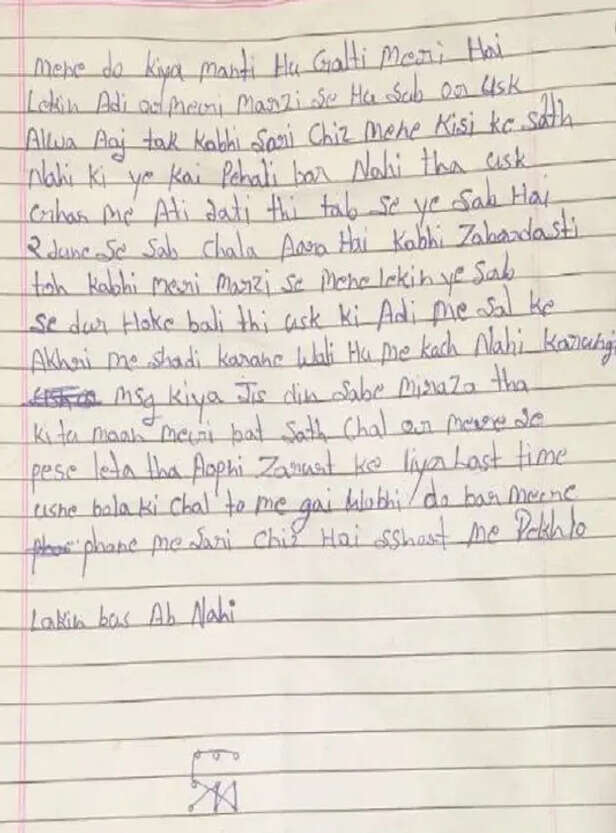 mene do kiya manti Hu Galti Meri Hai
Lekin Adi or meri Marzi Se Hu Sab or Usk
Alwa Aaj tak Kabhi Sari Chiz Mene Kisi ke Sath
Nahi Ki ye Kai Pehali bar Nahi tha usk
me Ati Jati thi tab Se ye Sab Hai
2 June Se Sab Chala Aara Hai Kabhi Zabardasti
toh Kabhi meri Marzi Se Mene lekin ye Sab
Se dur Hoke bali thi usk ki Adi me Sal ke
Akhri me Shadi Karane Wali Hu me Kach Nahi Karungi
Msg Kiya Jis din Sabe tha
ki tu maan meri bat Sath Chal or Se
pese leta tha Aaphi Zarurt ke liya Last time
usne bola ki Chal to me gai do bar
phone me Sari Chiz Hai me Dekhlo
Lakin bas Ab Nahi